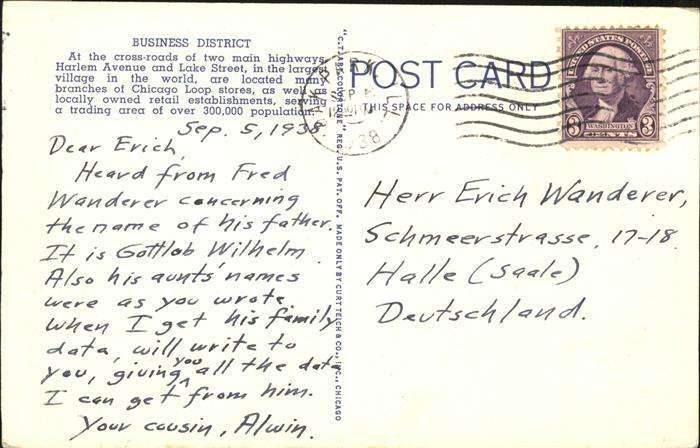 BUSINESS DISTRICT
At the cross-roads of two main highways,
Harlem Avenue and Lake Street, in the largest
village in the world, are located many
branches of Chicago Loop stores, as well as
locally owned retail establishments, serving
a trading area of over 300,000 population.
Sep. 5, 1938
Dear Erich,
Heard from Fred
Wanderer concerning
the name of his father.
It is Gottlob Wilhelm.
Also his aunts' names
were as you wrote.
When I get his family
data, will write to
you, giving you all the data
I can get from him.
Your cousin, Alwin.
"C.T. ART-COLORTONE" REG. U.S. PAT. OFF. MADE ONLY BY CURT TEICH & CO., INC., CHICAGO
POST CARD
THIS SPACE FOR ADDRESS ONLY
UNITED STATES POSTAGE
3 WASHINGTON 3
CENTS
Herr Erich Wanderer,
Schmeerstrasse, 17-18
Halle (Saale)
Deutschland.